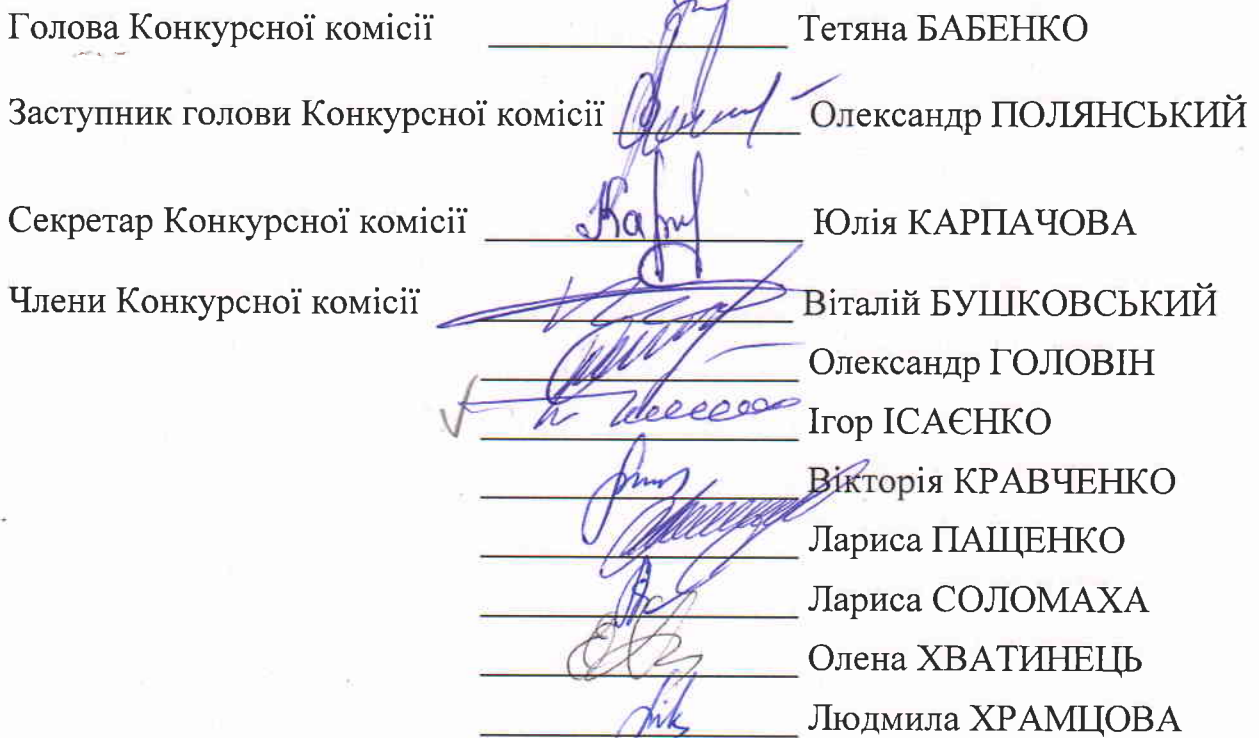 Голова Конкурсної комісії Тетяна БАБЕНКО
Заступник голови Конкурсної комісії Олександр ПОЛЯНСЬКИЙ
Секретар Конкурсної комісії Юлія КАРПАЧОВА
Члени Конкурсної комісії Віталій БУШКОВСЬКИЙ
Олександр ГОЛОВІН
Ігор ІСАЄНКО
Вікторія КРАВЧЕНКО
Лариса ПАЩЕНКО
Лариса СОЛОМАХА
Олена ХВАТИНЕЦЬ
Людмила ХРАМЦОВА